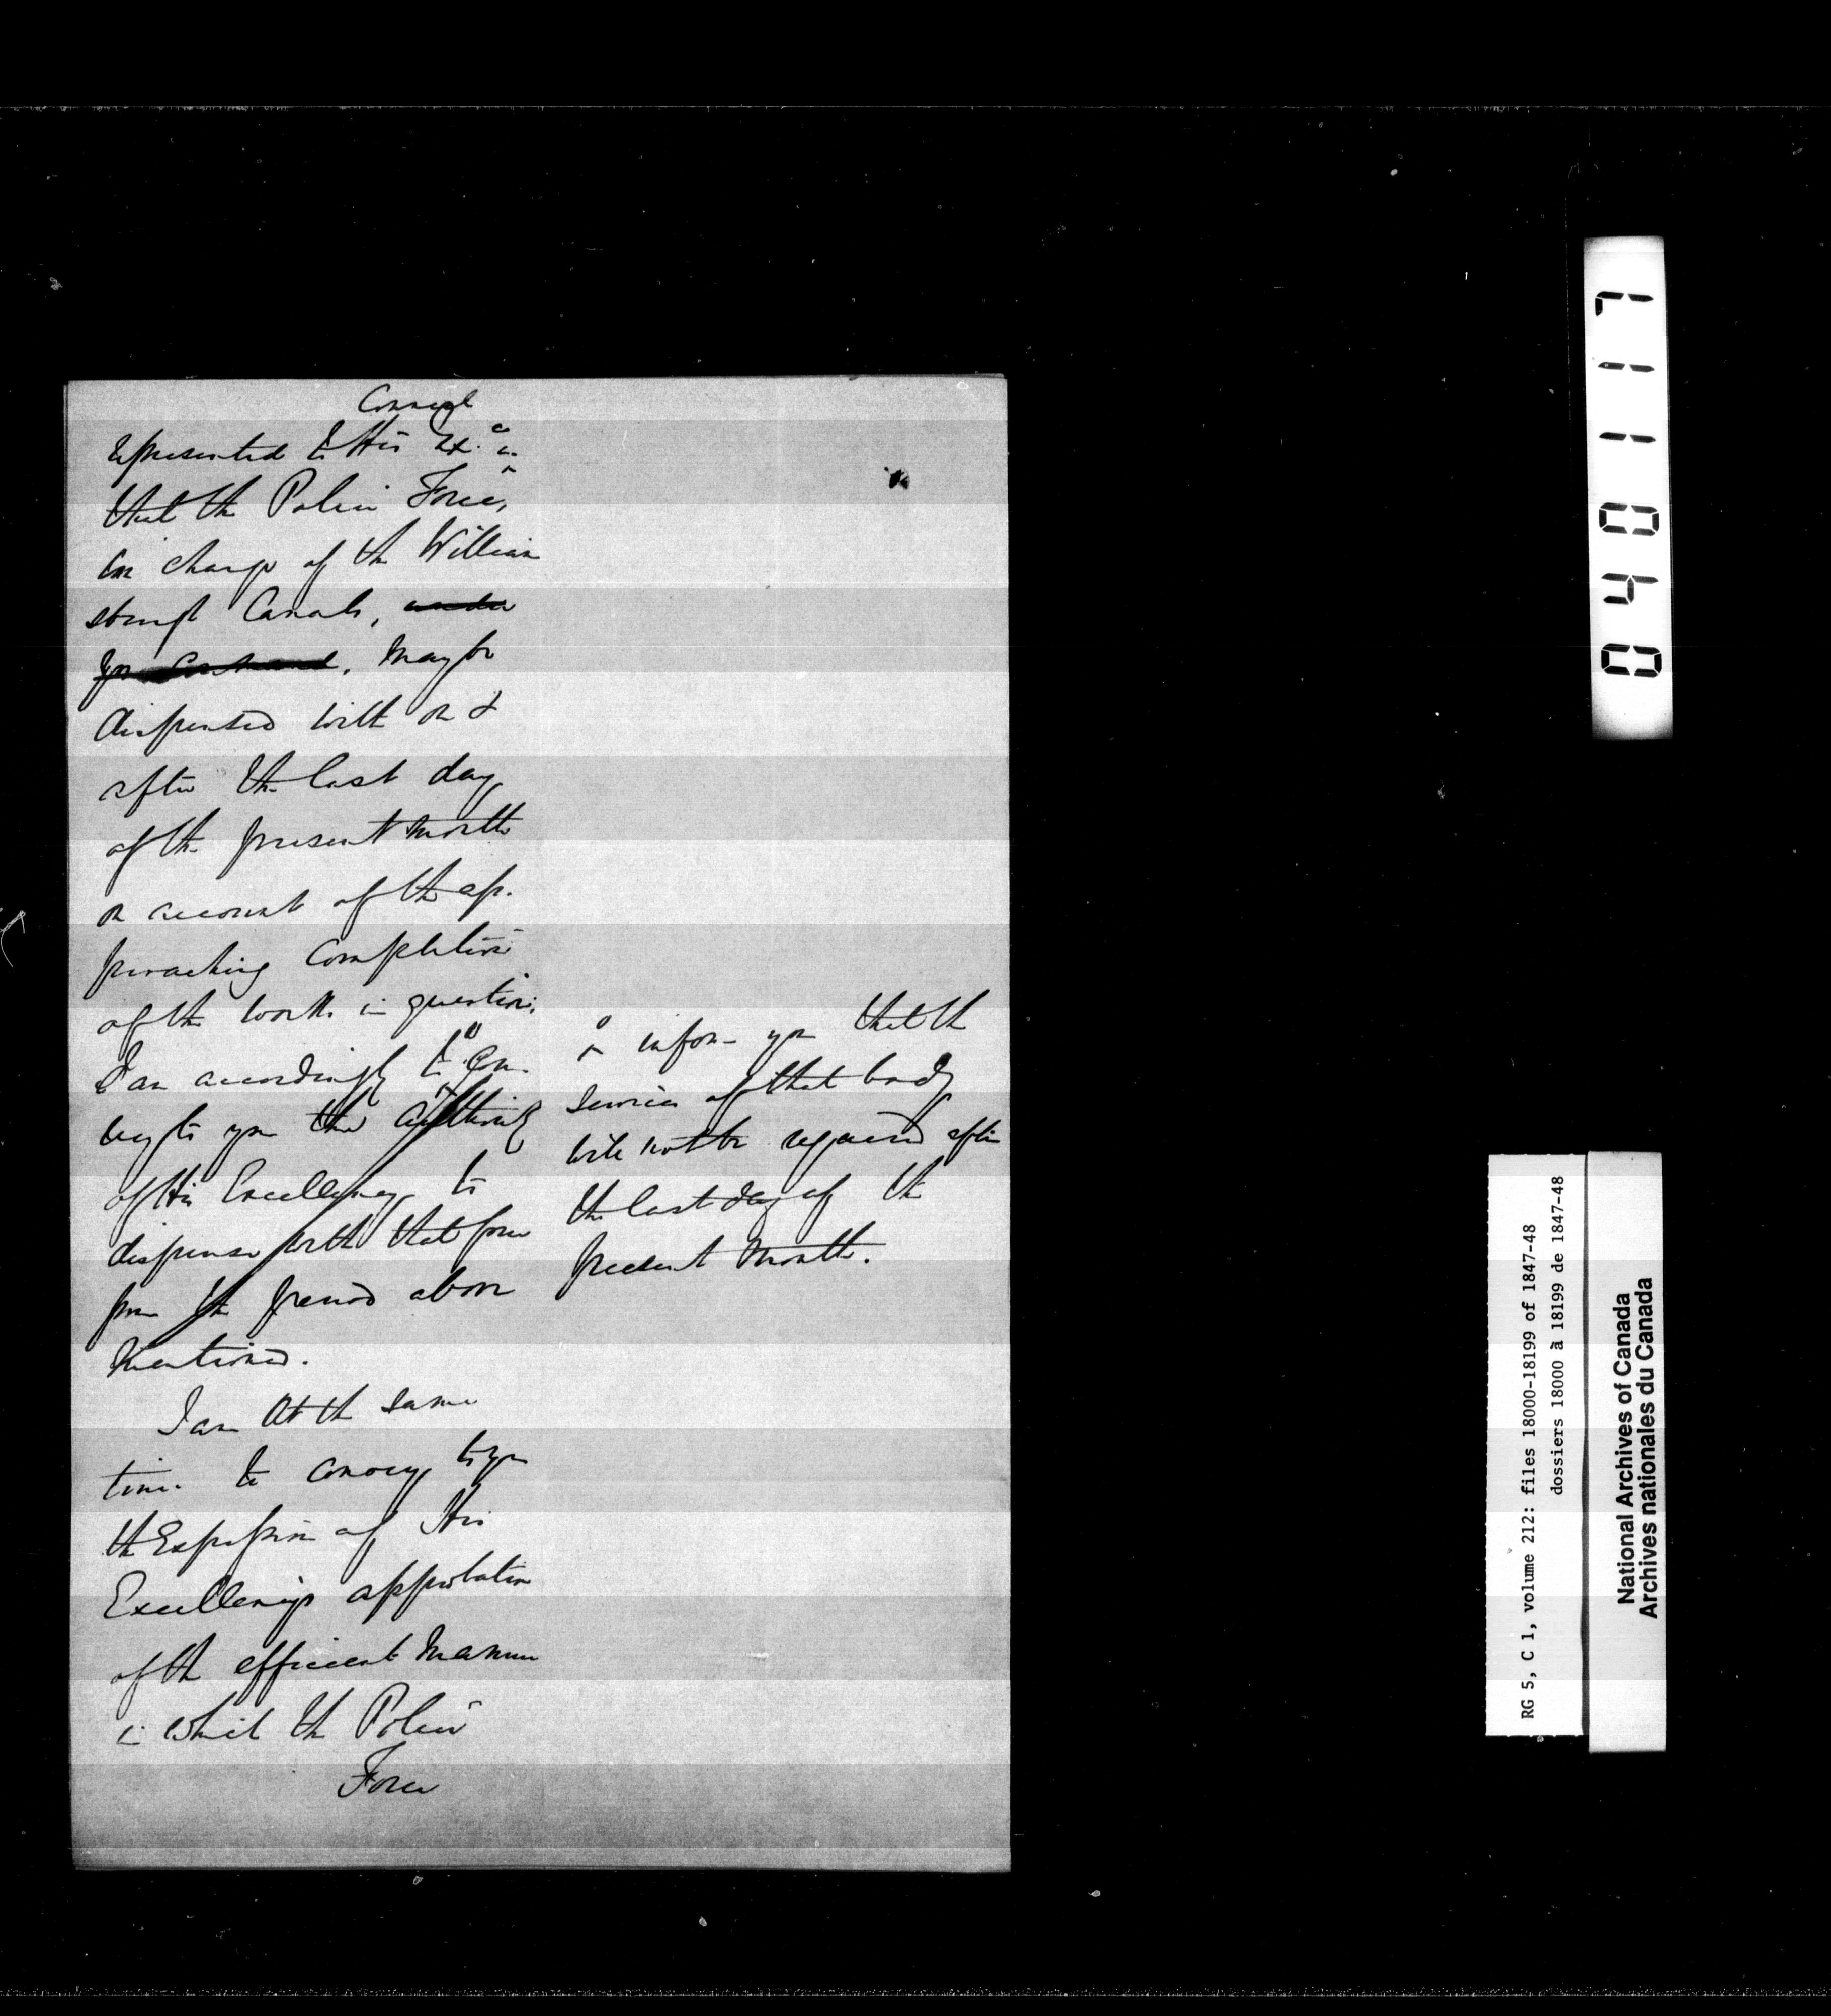 Council
represented to His Ex. in
that the Police Force,
in charge of the William
sburgh Canals, under
your Command, may be
dispensed with on &
after the last day
of the present month
on account of the ap-
proaching completion
of the works in question.
I am accordingly to con-
vey to you the authority
of His Excellency to
dispense with that force
from the period above
mentioned.
I am at the same
time to convey to you
the Expression of His
Excellency's approbation
of the efficient manner
in which the Police
Force
inform you that the
services of that body
will not be required after
the last day of the
present month.
041117
RG 5, C 1, volume 212: files 18000-18199 of 1847-48
dossiers 18000 à 18199 de 1847-48
National Archives of Canada
Archives nationales du Canada